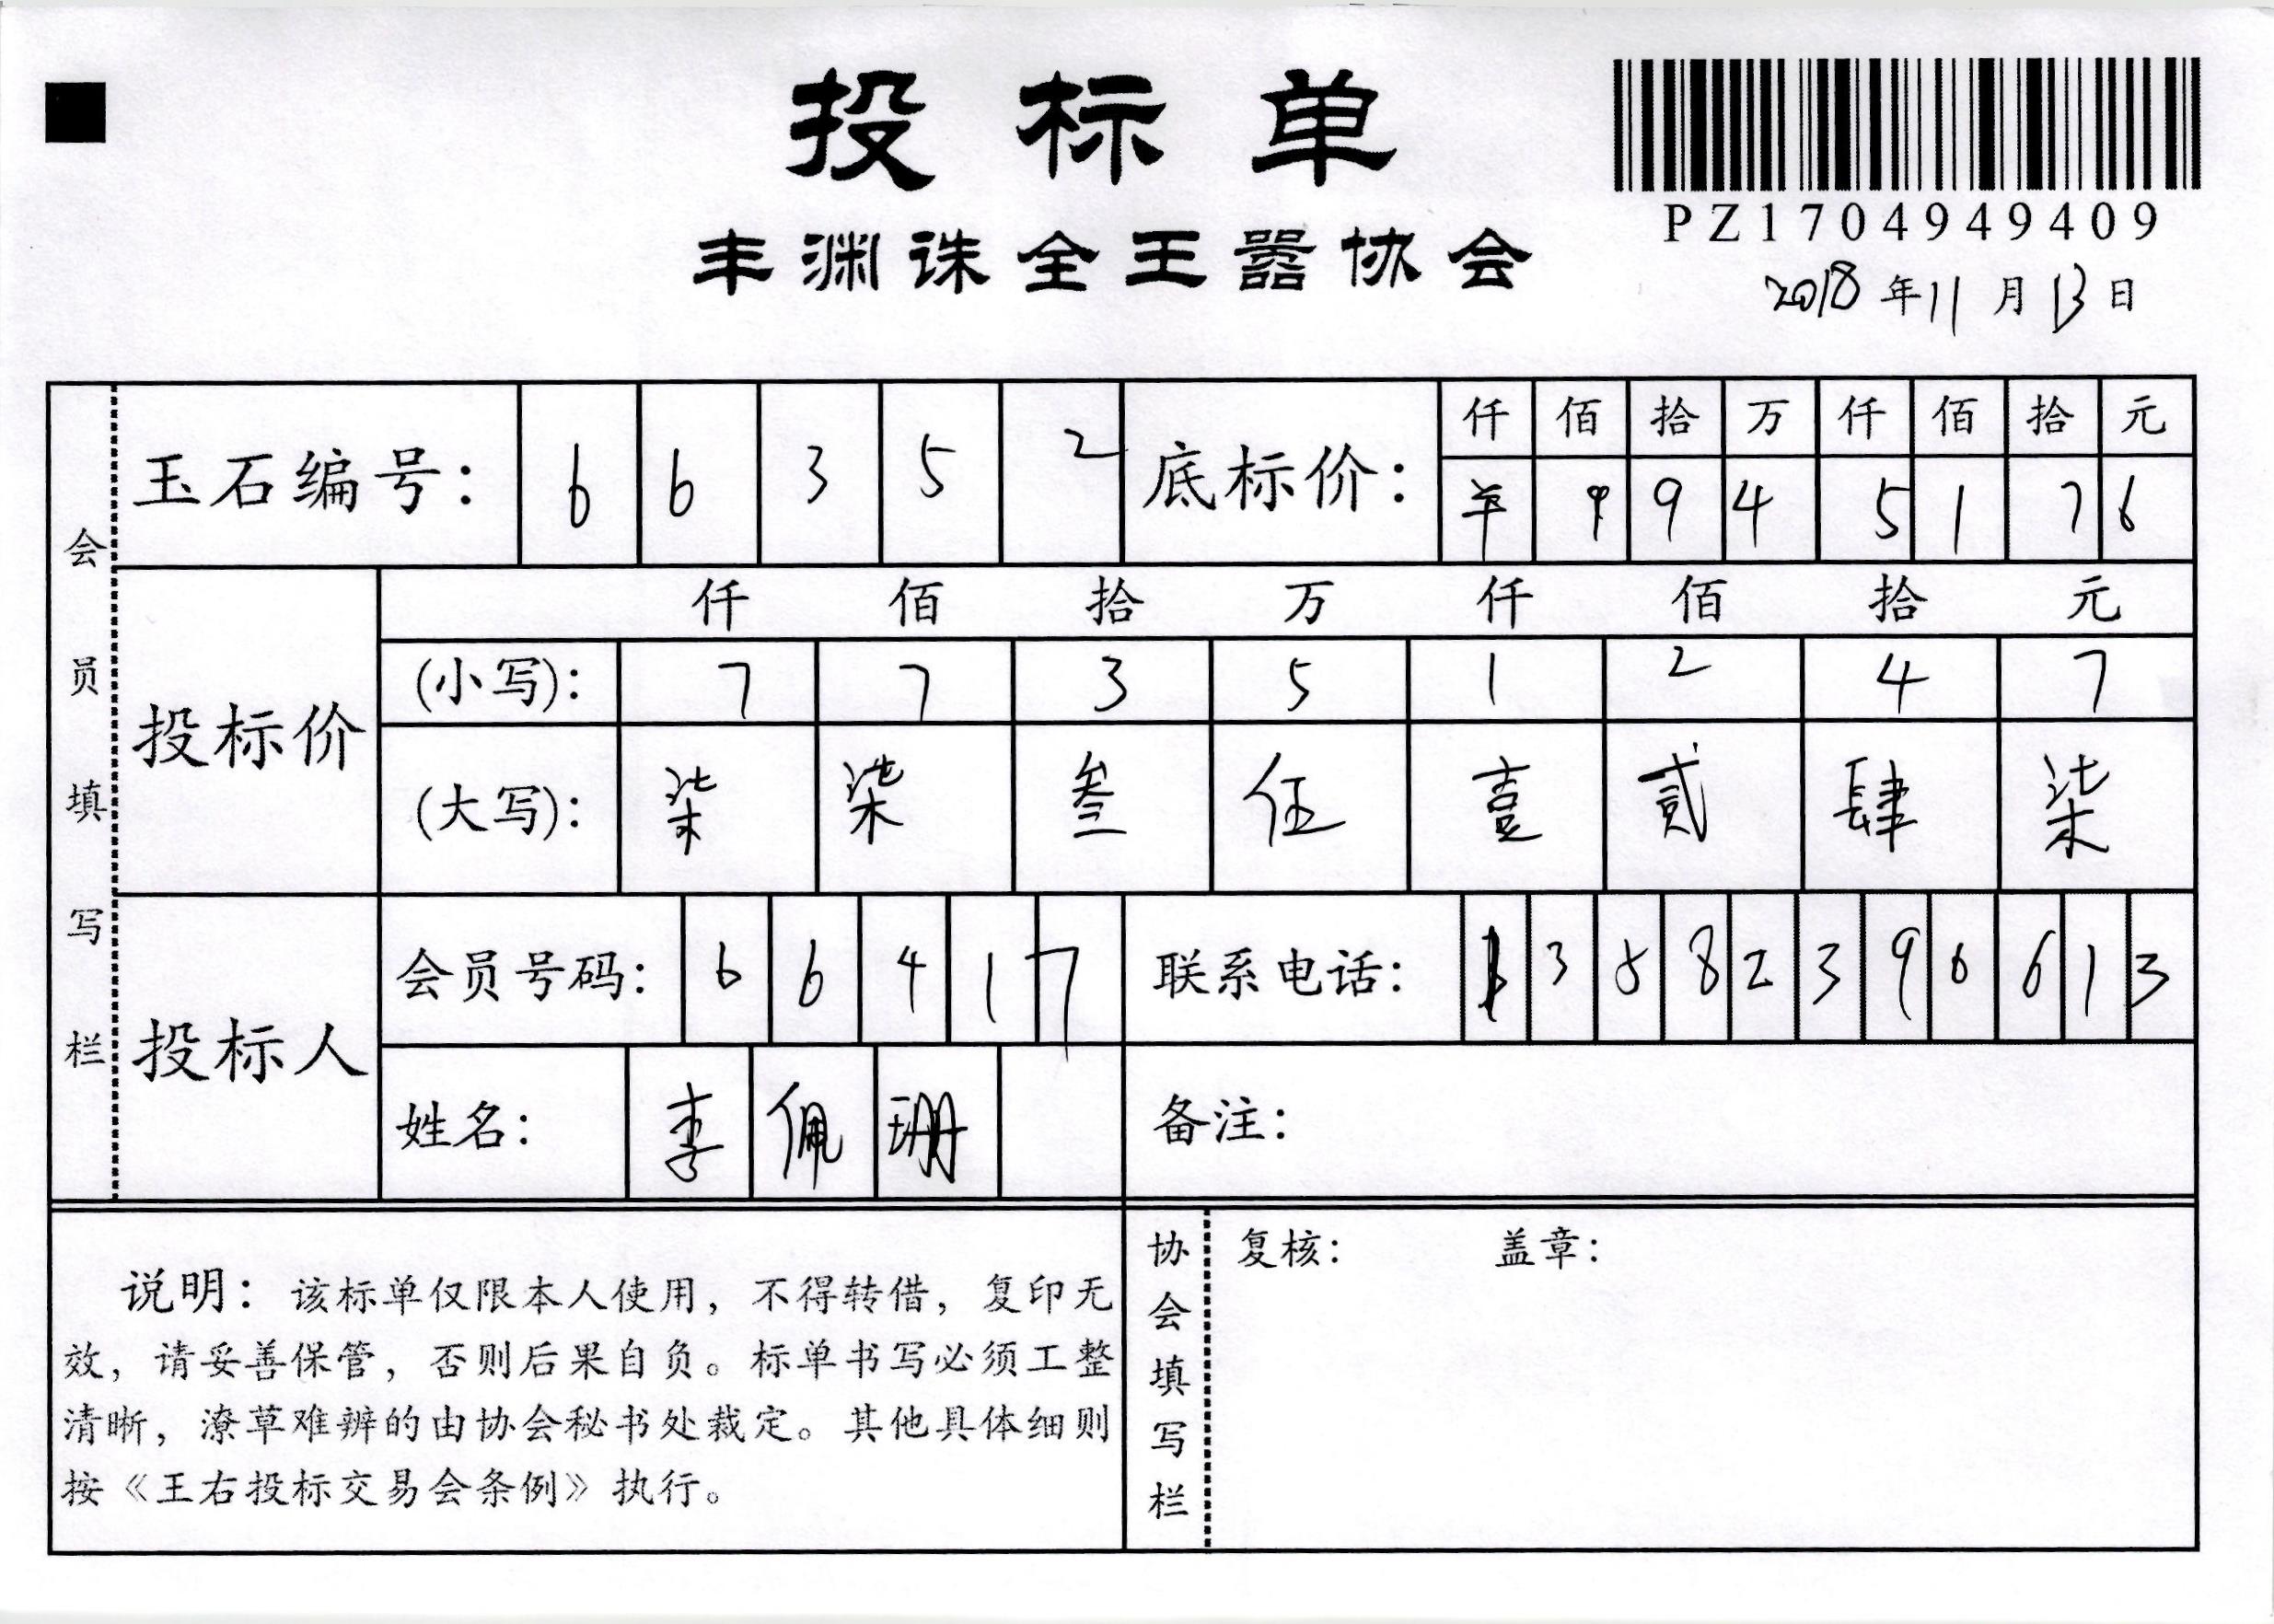 投标单
PZ1704949409
丰渊诛全王嚣协会
2018年11月13日
会员填写栏
玉石编号： 6 6 3 5 2
底标价： 仟 佰 拾 万 仟 佰 拾 元
9 9 4 5 1 7 6
投标价
仟 佰 拾 万 仟 佰 拾 元
(小写)： 7 7 3 5 1 2 4 7
(大写)： 柒 柒 叁 伍 壹 贰 肆 柒
投标人
会员号码： 6 6 4 1 7
联系电话： 1 3 8 8 2 3 9 6 6 1 3
姓名： 李 佩 珊
备注：
说明：该标单仅限本人使用，不得转借，复印无
效，请妥善保管，否则后果自负。标单书写必须工整
清晰，潦草难辨的由协会秘书处裁定。其他具体细则
按《王右投标交易会条例》执行。
协会填写栏
复核： 盖章：